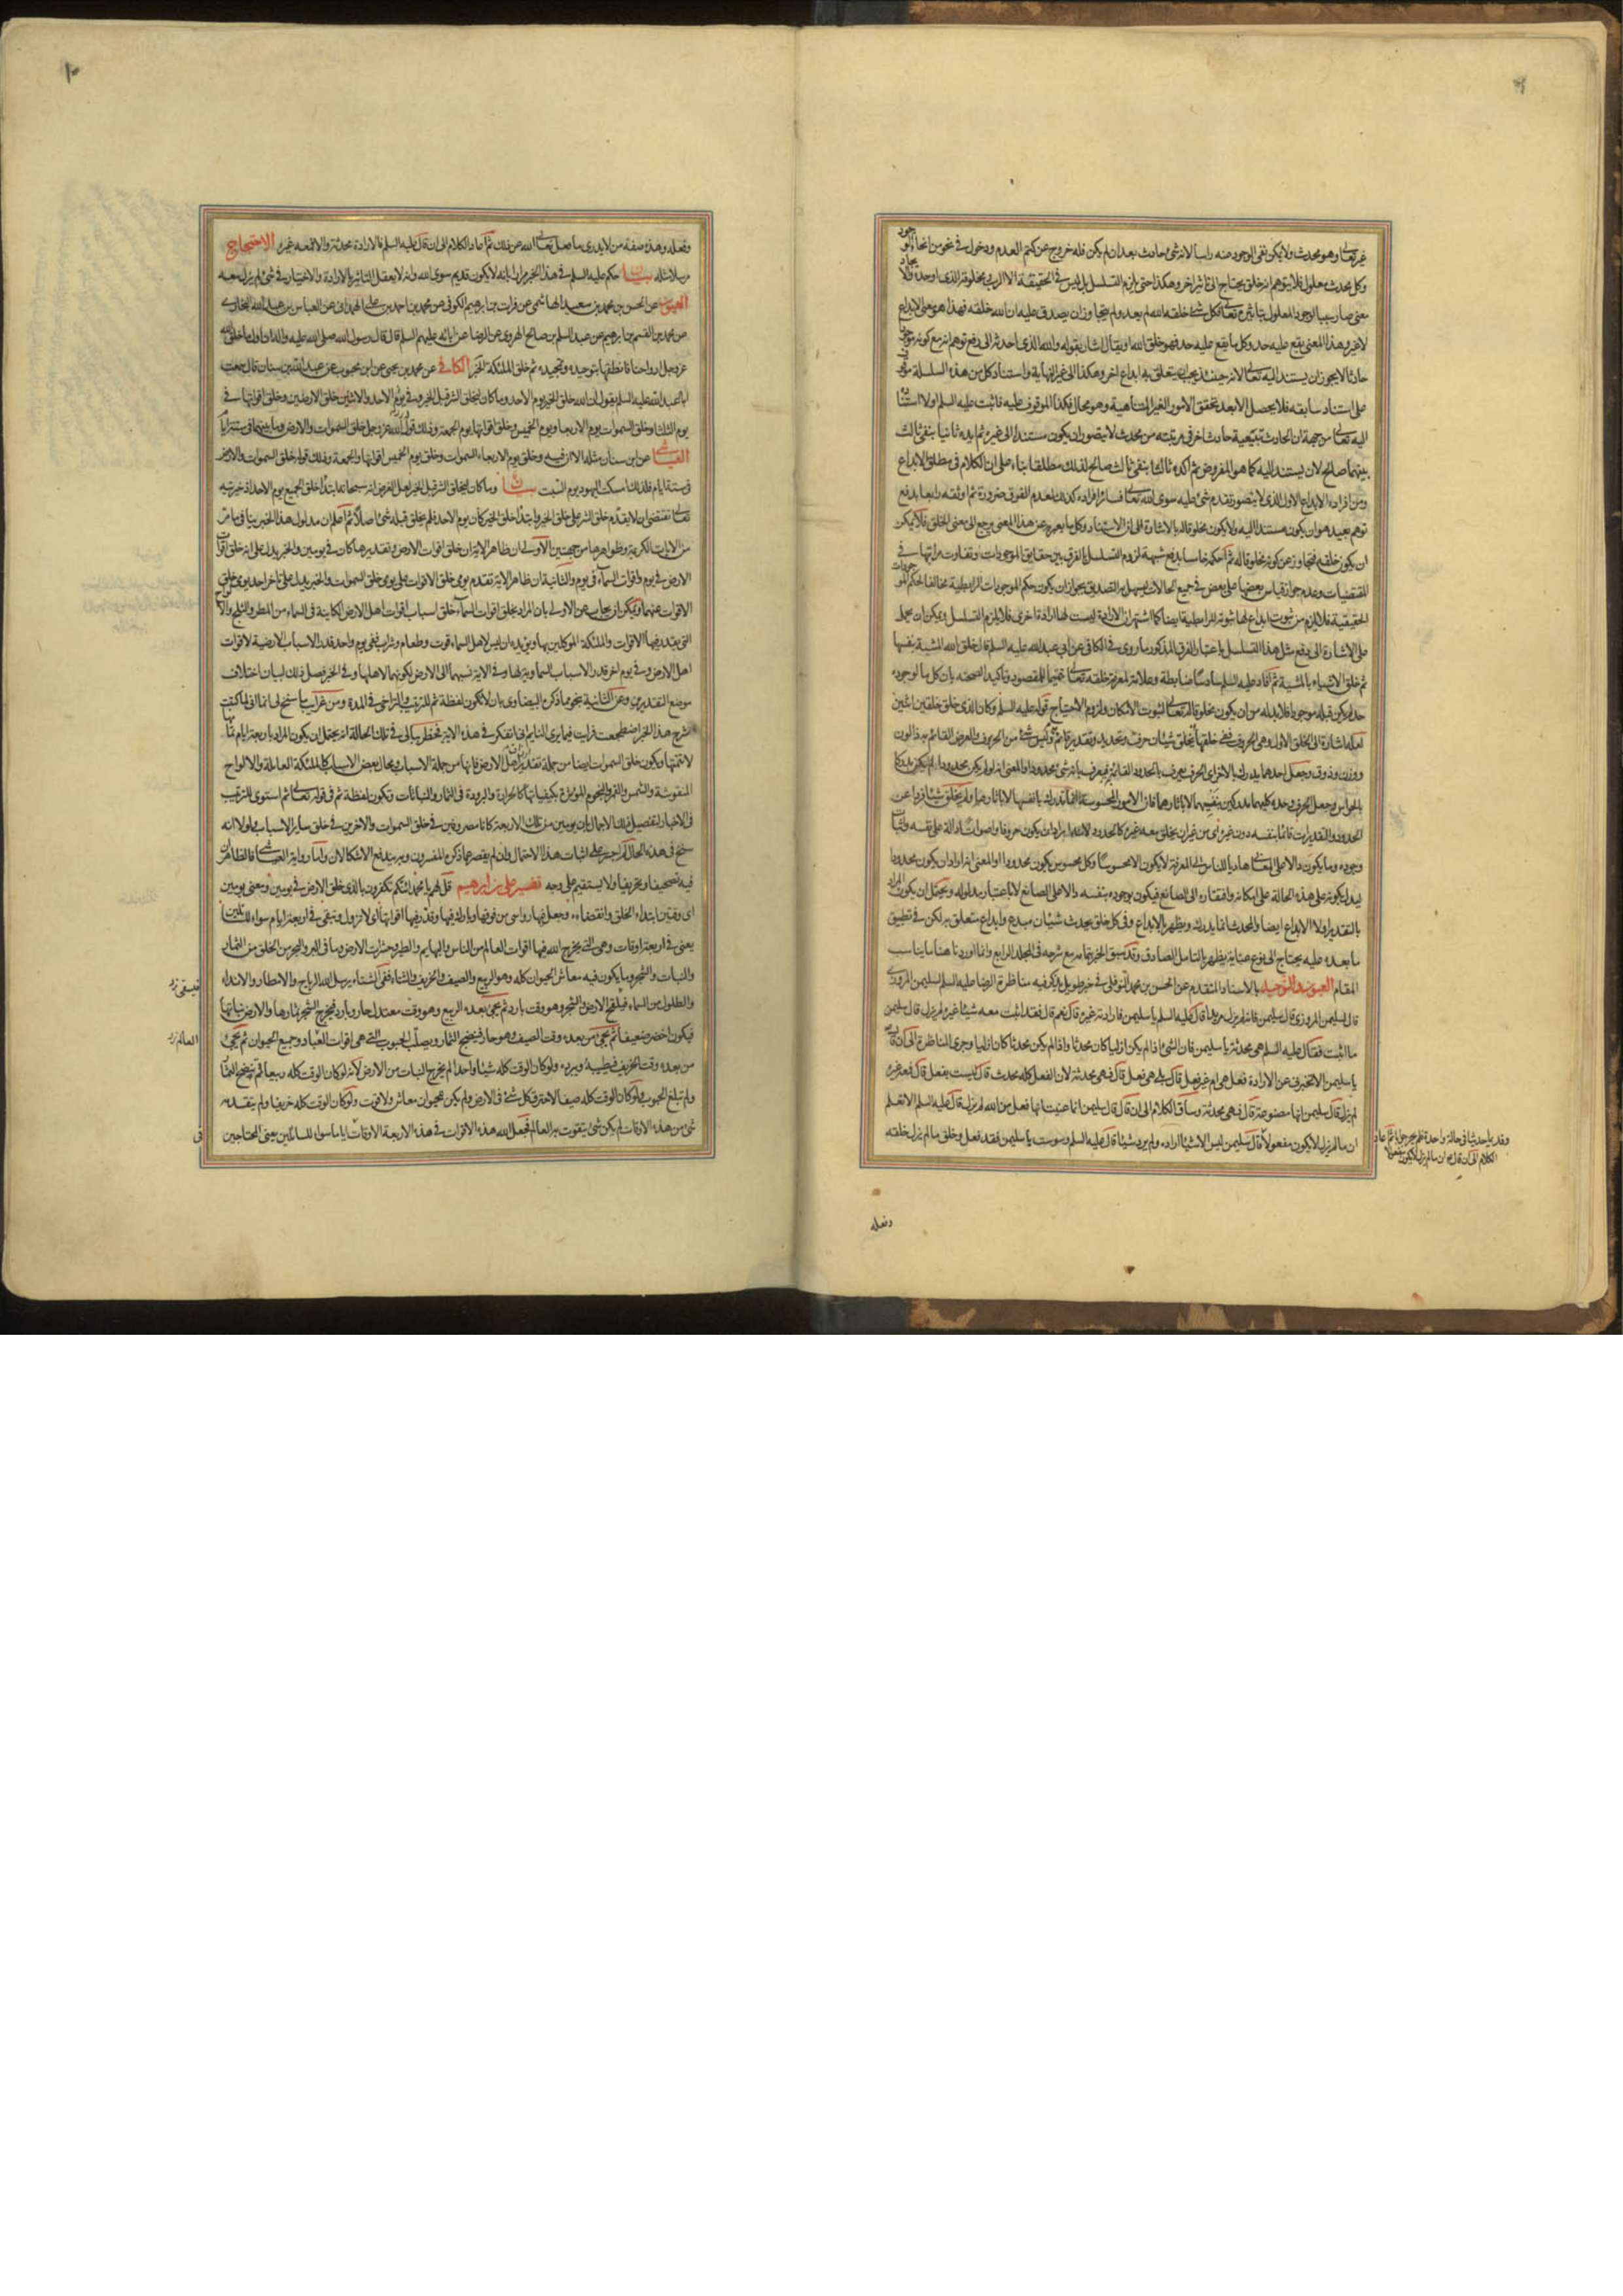 غيره تعالى وهو محدث ولا يمكن نفي الوجود عنه رأسا لانه شئ حادث بعد ان لم يكن فله خروج عن كتم العدم ودخول في نحو من انحاء الوجود
وكل محدث معلول فلا يتوهم انه خلق يحتاج الى تاثير اخر وهكذا حتى يلزم التسلسل بل ليس في الحقيقة الا الرب ومخلوقه الذي اوجده
معنى صار سببا لوجود المعلول بتأثيره تعالى فكل شئ خلقه الله لم يعد ولم يتجاوز ان يصدق عليه ان الله خلقه فهذا هو معنى الابداع
لا غير وهذا المعنى يقع عليه حد وكل ما يقع عليه حد فهو خلق الله او يقال اشار بقوله والله الذي احدثه الى دفع توهم انه مع كونه موجودا
حادثا لا يجوز ان يستند اليه تعالى لانه حينئذ يجب ان يتعلق به ابداع اخر وهكذا الى غير النهاية واستناد كل من هذه السلسلة
على استناد سابقه فلا يحصل الا بعد تحقق الامور الغير المتناهية وهو محال فكذا الموقوف عليه فاثبت عليه السلم اولا استناده
اليه تعالى من جهة ان الحادث بتبعية حادث اخر في مرتبته من محدث لا يتصور ان يكون مستندا الى غيره ثم ايده ثانيا بنفي ثالث
بينهما صالح لان يستند اليه كما هو المفروض ثم اكده ثالثا بنفي ثالث صالح لذلك مطلقا بناء على ان الكلام في مطلق الابداع
ومن افراده الابداع الاول الذي لا يتصور تقدم شئ عليه سوى الله تعالى فسائر افراده كذلك لعدم الفرق ضرورة ثم اوثقه رابعا بدفع
توهم بعيد هو ان يكون مستندا اليه ولا يكون مخلوقا له بالاشارة الى ان الاستناد وكل ما يعبر به عن هذا المعنى يرجع الى معنى الخلق فلا يمكن
ان يكون خلقه فتجاوز عن كونه مخلوقا له ثم احكمه خامسا بدفع شبهة لزوم التسلسل بالفرق بين حقايق الموجودات وتفاوت مراتبها في
المقتضيات وعدم جواز قياس بعضها على بعض في جميع الحالات ليسهل به التصديق بجواز ان يكون حكم الموجودات الرابطية مخالفا لحكم الموجودات
الحقيقية فلا يلزم من ثبوت ابداع لها ثبوته للرابطية ايضا كما اشتهر ان الارادة ليست لها ارادة اخرى فلا يلزم التسلسل ويمكن ان يحمل
على الاشارة الى دفع مثل هذا التسلسل باعتبار الفرق المذكور ما روى في الكافي عن ابي عبد الله عليه السلم قال خلق الله المشية بنفسها
ثم خلق الاشياء بالمشية ثم افاد عليه السلم سادسا ضابطة وعلامة لمعرفة خلقه تعالى تتميما للمقصود وتأكيدا لصحته بان كل ما لوجوده
حد لم يكن قبله موجودا فلا بد له من ان يكون مخلوقا له تعالى لثبوت الامكان ولزوم الاحتياج قوله عليه السلم وكان الذي خلق خلقين اثنين
لعله اشارة الى الخلق الاول وهي الحروف ففي خلقها يخلق شيئان حرف وتحديد وتقدير قائم به وليس شئ من الحروف والعرض القائم به ذا لون
ووزن وذوق وجعل احدهما يدرك بالاخر اي الحرف يعرف بالحدود القائمة به فيعرف بانه شئ محدود او المعنى انه لو لم يكن محدودا لم يكن مدركا
بالحواس وجعل الحرف وحده كليهما مدركين بنفسهما لا باثارهما فان الامور المحسوسة انما تدرك بانفسها لا باثارها ولم يخلق شيئا فردا عن
الحدود والتقديرات قائما بنفسه دون غيره اي من غير ان يخلق معه غيره كالحدود لانه اراد ان يكون حروفا واصواتا دالة على نفسه واثبات
وجوده وما يكون دالا على المعاني هاديا للناس الى المعرفة لا يكون الا محسوسا وكل محسوس يكون محدودا او المعنى انه اراد ان يكون محدودا
ليدل بكونه على هذه الحالة على امكانه وافتقاره الى الصانع فيكون بوجوده بنفسه دالا على الصانع لا باعتبار مدلوله ويحتمل ان يكون المراد
بالتقدير اولا الابداع ايضا والمحدث انما يدرك ويظهر بالابداع وفي كل خلق يحدث شيئان مبدع وابداع متعلق به لكن في تطبيق
ما بعده عليه يحتاج الى نوع عناية يظهر بالتامل الصادق وقد سبق الخبر بتمامه مع شرحه في المجلد الرابع وانما اوردنا هنا ما يناسب
المقام العيون والتوحيد بالاسناد المتقدم عن الحسن بن محمد النوفلي في خبر طويل يذكر فيه مناظرة الرضا عليه السلم سليمن المروزي
قال سليمن المروزي قال سليمن فانه لم يزل مريدا قال عليه السلم يا سليمن فارادته غيره قال نعم قال فقد اثبت معه شيئا غيره لم يزل قال سليمن
ما اثبت فقال عليه السلم هي محدثة يا سليمن فان الشئ اذا لم يكن ازليا كان محدثا واذا لم يكن محدثا كان ازليا وجرى المناظرة الى ان قال
يا سليمن الا تخبرني عن الارادة فعل هي ام غير فعل قال بلى هي فعل قال فهي محدثة لان الفعل كله محدث قال ليست بفعل قال فمعه غيره
لم يزل قال سليمن انها مصنوعة قال فهي محدثة وساق الكلام الى ان قال قال سليمن انما عنيت انها فعل من الله لم يزل قال عليه السلم الا تعلم
ان ما لم يزل لا يكون مفعولا قال سليمن ليس الاشياء ارادة ولم يرد شيئا قال عليه السلم وسوست يا سليمن فقد فعل وخلق ما لم يزل خلقه
وفعله
وفعله وهذه صفة من لا يدري ما فعل تعالى الله عن ذلك ثم اعاد الكلام الى ان قال عليه السلم فالارادة محدثة والا فمعه غيره الاحتجاج
مرسلا مثله بيان حكم عليه السلم في هذا الخبر مرارا بانه لا يكون قديم سوى الله وانه لا يعقل التاثير بالارادة والاختيار في شئ لم يزل معه
العيون عن الحسن بن محمد بن سعيد الهاشمي عن فرات بن ابرهيم الكوفي عن محمد بن احمد بن علي الهمداني عن العباس بن عبد الله البخاري
عن محمد بن القسم بن ابرهيم عن عبد السلم بن صالح الهروي عن الرضا عن ابائه عليهم السلم قال قال رسول الله صلى الله عليه واله ان اول ما خلق الله
عز وجل ارواحنا فانطقها بتوحيده وتمجيده ثم خلق الملئكة الخبر الكافي عن محمد بن يحيى عن ابن محبوب عن عبد الله بن سنان قال سمعت
ابا عبد الله عليه السلم يقول ان الله خلق الخير يوم الاحد وما كان ليخلق الشر قبل الخير وفي يوم الاحد والاثنين خلق الارضين وخلق اقواتها في
يوم الثلثا وخلق السموات يوم الاربعا ويوم الخميس وخلق اقواتها يوم الجمعة وذلك قول الله عز وجل خلق السموات والارض وما بينهما في ستة ايام
العياشي عن ابن سنان مثله الا ان فيه وخلق يوم الاربعاء السموات وخلق يوم الخميس اقواتها والجمعة وذلك قوله خلق السموات والارض
في ستة ايام فلذلك امسكت اليهود يوم السبت بيان وما كان ليخلق الشر قبل الخير لعل الغرض انه سبحانه ابتدأ خلق الجميع يوم الاحد اذ خيريته
تعالى تقتضي ان لا يقدم خلق الشر على خلق الخير وابتداء خلق الخير كان يوم الاحد فلم يخلق قبله شئ اصلا ثم اعلم ان مدلول هذا الخبر ينافي ما مر
من الايات الكريمة وظواهرها من جهتين الاولى ان ظاهر الاية ان خلق اقوات الارض وتقديرها كان في يومين والخبر يدل على انه خلق اقوات
الارض في يوم واقوات السماء في يوم والثانية ان ظاهر الاية تقدم يومي خلق الاقوات على يومي خلق السموات والخبر يدل على تاخر احد يومي خلق
الاقوات عنهما ويمكن ان يجاب عن الاولى بان المراد بخلق اقوات السماء خلق اسباب اقوات اهل الارض الكاينة في السماء من المطر والثلج والالواح
التي يقدر فيها الاقوات والملئكة الموكلين بها ويؤيده ان ليس لاهل السماء قوت وطعام وشراب ففي يوم واحد قدر الاسباب الارضية لاقوات
اهل الارض وفي يوم اخر قدر الاسباب السماوية لها وفي الاية نسبهما الى الارض لكونهما لاهلها وفي الخبر فصل ذلك لبيان اختلاف
موضع التقديرين وعن الثانية بنحو ما ذكره البيضاوي بان لا تكون لفظة ثم للترتيب والتراخي في المدة ومن غرائب ما سنح لي اني لما كتبت
شرح هذا الخبر اضطجعت فرايت فيما يرى النايم اني اتفكر في هذه الاية فخطر ببالي في تلك الحالة انه يحتمل ان يكون المراد باربعة ايام تمامها
لا تتمتها ويكون خلق السموات ايضا من جملة تقدير ارزاق اهل الارض فانها من جملة الاسباب ومحال بعض الاسباب كالملئكة العاملة والالواح
المنقوشة والشمس والقمر والنجوم المؤثرة بكيفياتها كالحرارة والبرودة في الثمار والنباتات وتكون لفظة ثم في قوله تعالى ثم استوى للترتيب
في الاخبار لتفصيل ذلك الاجمال بان يومين من تلك الاربعة كانا مصروفين في خلق السموات والاخرين في خلق ساير الاسباب ولولا انه
سنح في هذه الحال لم اجسر على اثبات هذا الاحتمال وان لم يقصر عما ذكره المفسرون وبه يندفع الاشكالان واما رواية العياشي فالظاهر ان
فيه تصحيفا وتحريفا ولا يستقيم على وجه تفسير علي بن ابرهيم قل لهم يا محمد ائنكم لتكفرون بالذي خلق الارض في يومين ومعنى يومين
اي وقتين ابتداء الخلق وانقضاءه وجعل فيها رواسي من فوقها وبارك فيها وقدر فيها اقواتها اي لا تزول وتبقى في اربعة ايام سواء للسائلين
يعني في اربعة اوقات وهي التي يخرج الله فيها اقوات العالم من الناس والبهايم والطير وحشرات الارض وما في البر والبحر من الخلق من الثمار
والنبات والشجر وما يكون فيه معاش الحيوان كله وهو الربيع والصيف والخريف والشتاء ففي الشتاء يرسل الله الرياح والامطار والانداء
والطلول من السماء فيلقح الارض والشجر وهو وقت بارد ثم يجئ بعده الربيع وهو وقت معتدل حار وبارد فيخرج الشجر ثمارها والارض نباتها
فيكون اخضر ضعيفا ثم يجئ من بعده وقت الصيف وهو حار فينضج الثمار ويصلب الحبوب التي هي اقوات العباد وجميع الحيوان ثم يجئ
من بعده وقت الخريف فيطيبه ويبرده ولو كان الوقت كله شيئا واحدا لم يخرج النبات من الارض لانه لو كان الوقت كله ربيعا لم تنضج الثمار
ولم تبلغ الحبوب ولو كان الوقت كله صيفا لاحترق كل شئ في الارض ولم يكن للحيوان معاش ولا قوت ولو كان الوقت كله خريفا ولم يتقدمه
شئ من هذه الاوقات لم يكن شئ يتقوت به العالم فجعل الله هذه الاقوات في هذه الاربعة الاوقات اياما سواء للسائلين يعني المحتاجين